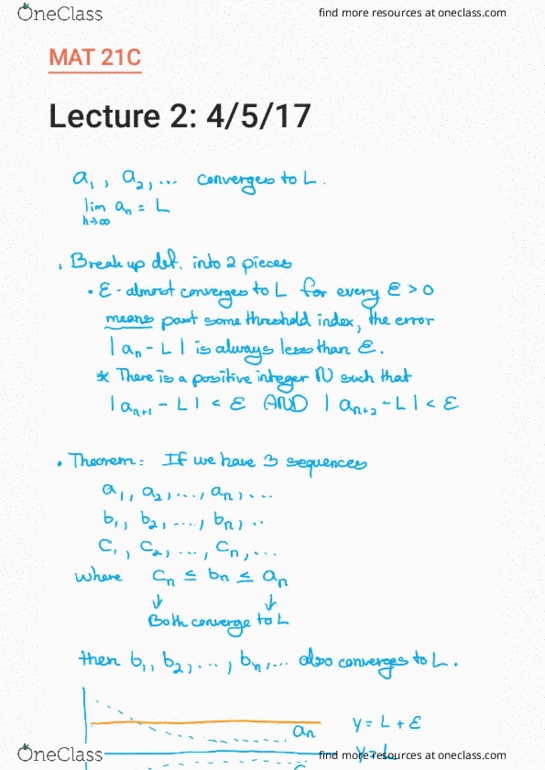 OneClass find more resources at oneclass.com
MAT 21C
Lecture 2: 4/5/17
a₁, a₂, ... converges to L.
lim aₙ = L
n→∞
• Break up def. into 2 pieces
• ε-almost converges to L for every ε > 0
means past some threshold index, the error
|aₙ - L| is always less than ε.
* There is a positive integer N such that
|aₙ₊₁ - L| < ε AND |aₙ₊₂ - L| < ε
• Theorem: If we have 3 sequences
a₁, a₂, ..., aₙ, ...
b₁, b₂, ..., bₙ, ...
C₁, C₂, ..., Cₙ, ...
where Cₙ ≤ bₙ ≤ aₙ
↓ ↓
Both converge to L
then b₁, b₂, ..., bₙ, ... also converges to L.
aₙ y = L + ε
y = L
OneClass find more resources at oneclass.com